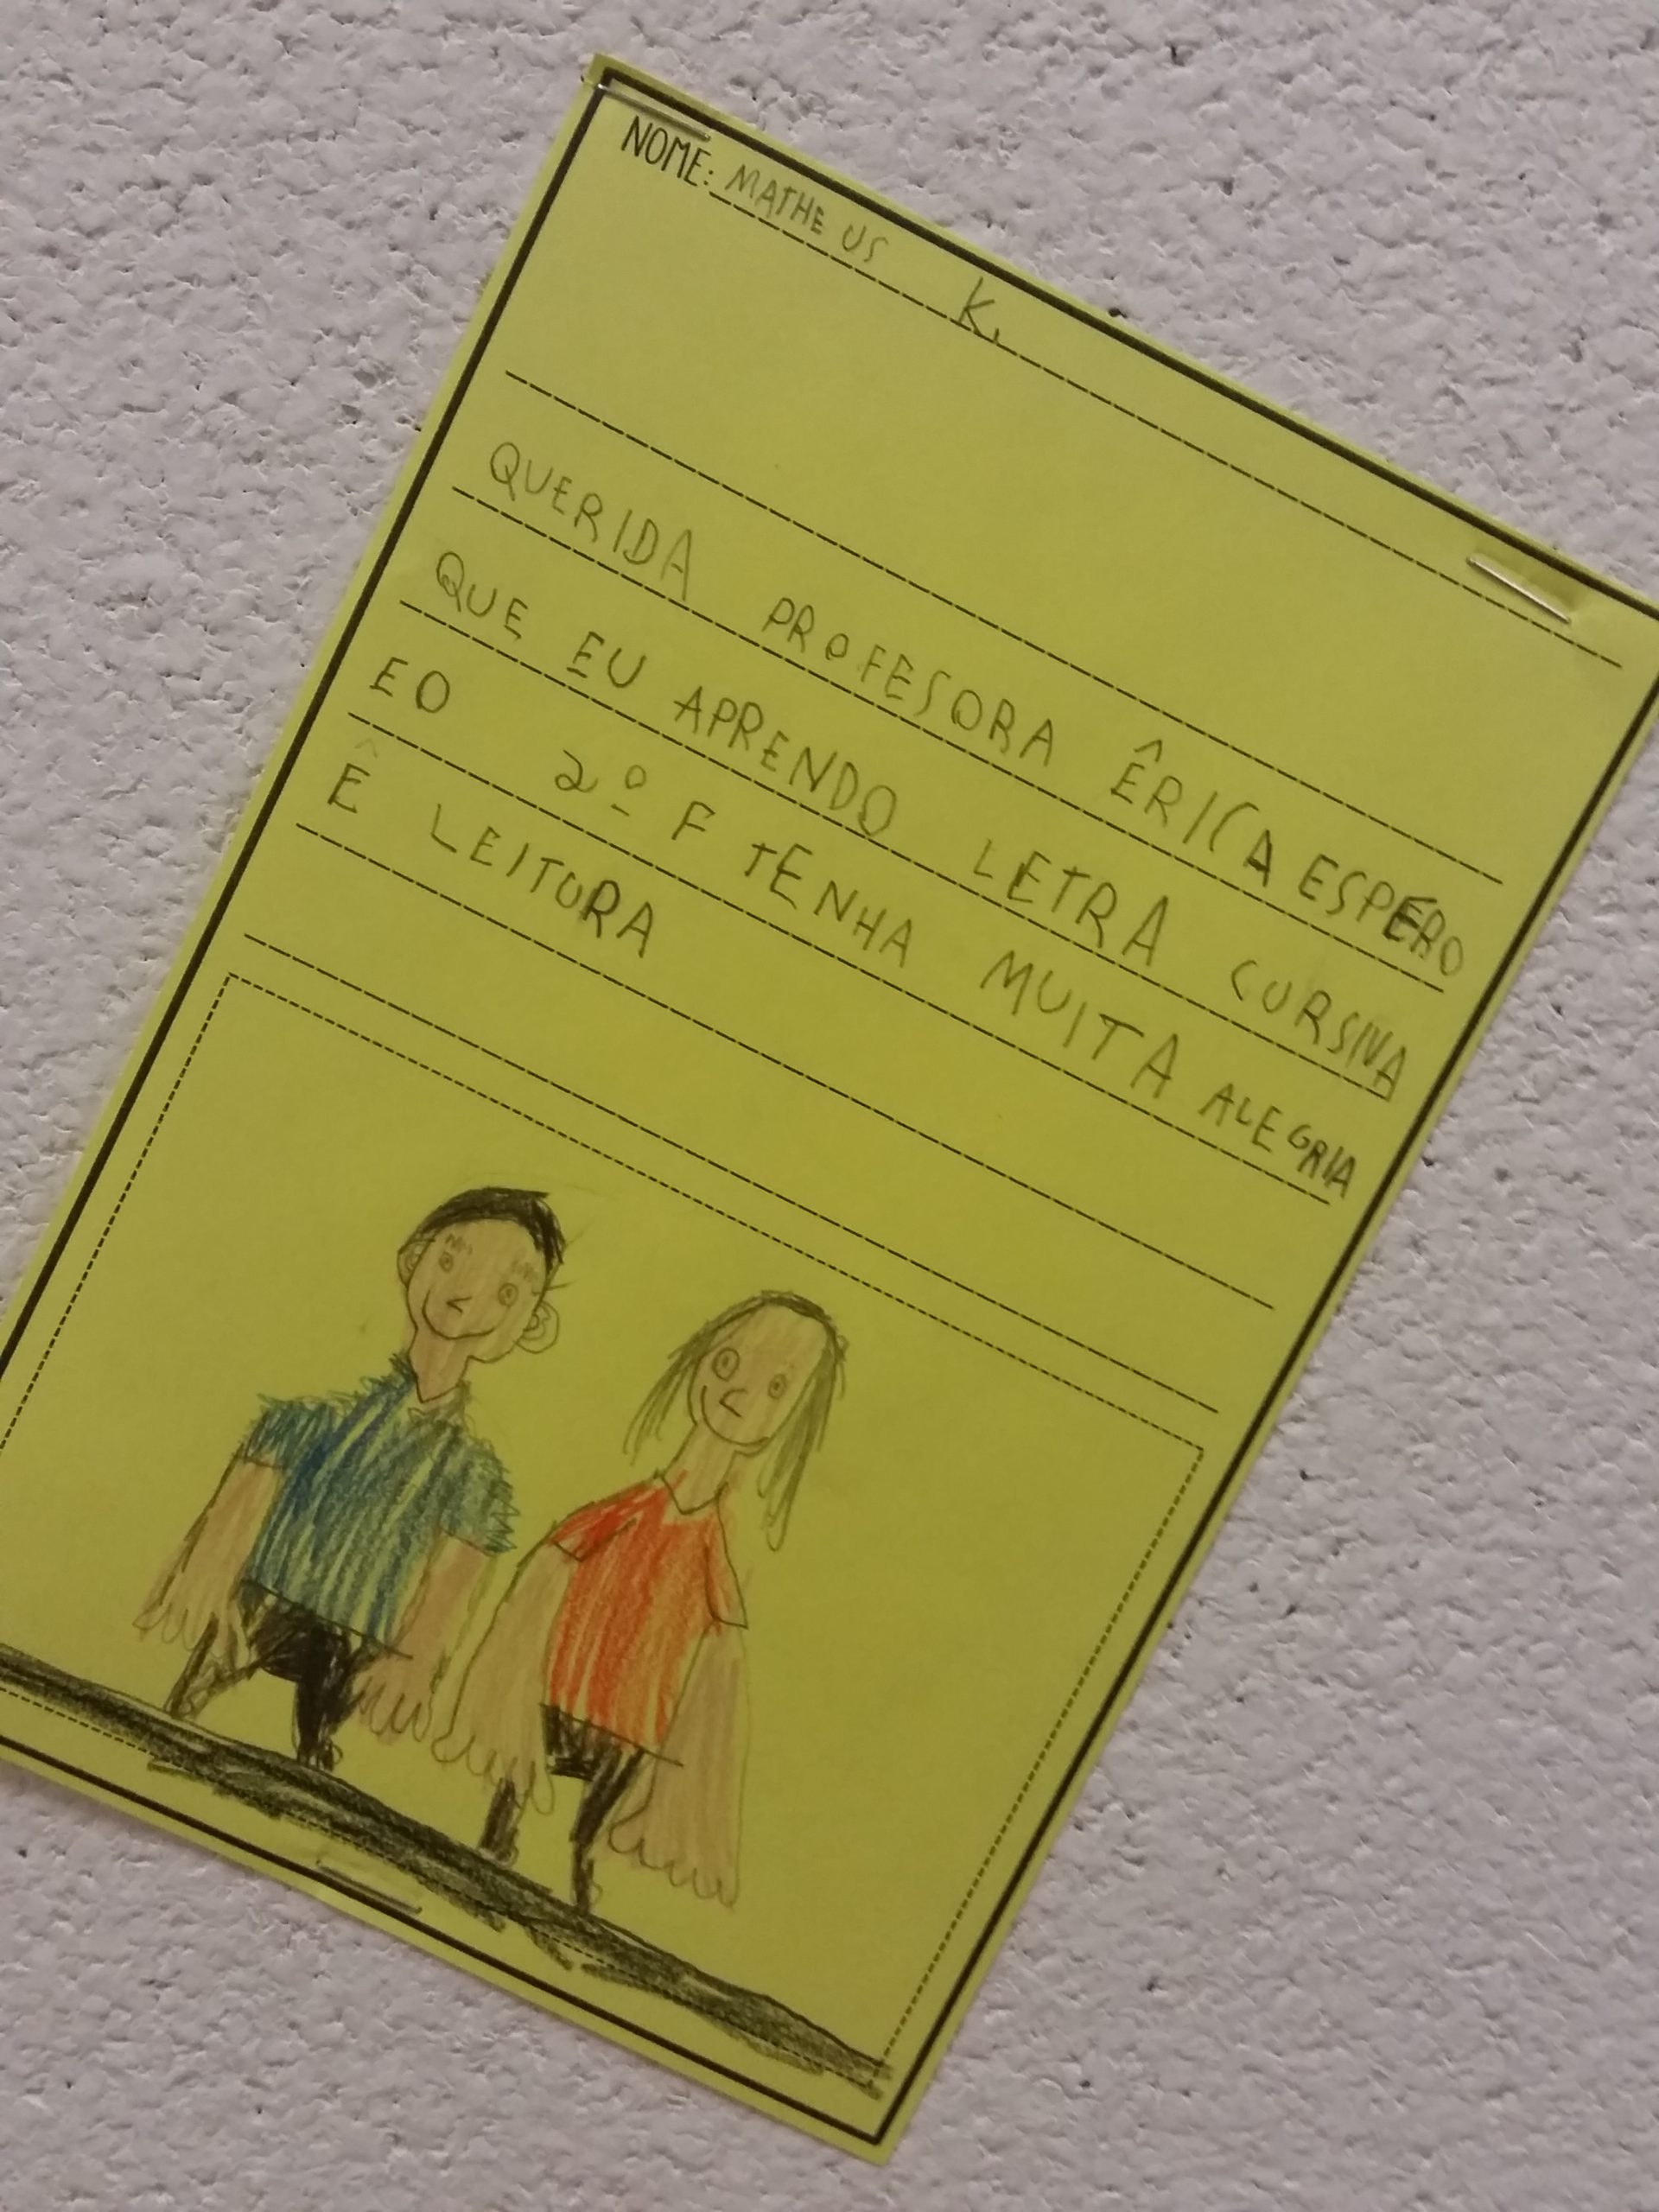 NOME: MATHEUS K.
QUERIDA PROFESORA ÊRICA ESPERO
QUE EU APRENDO LETRA CURSIVA
E O 2º F TENHA MUITA ALEGRIA
Ê LEITORA